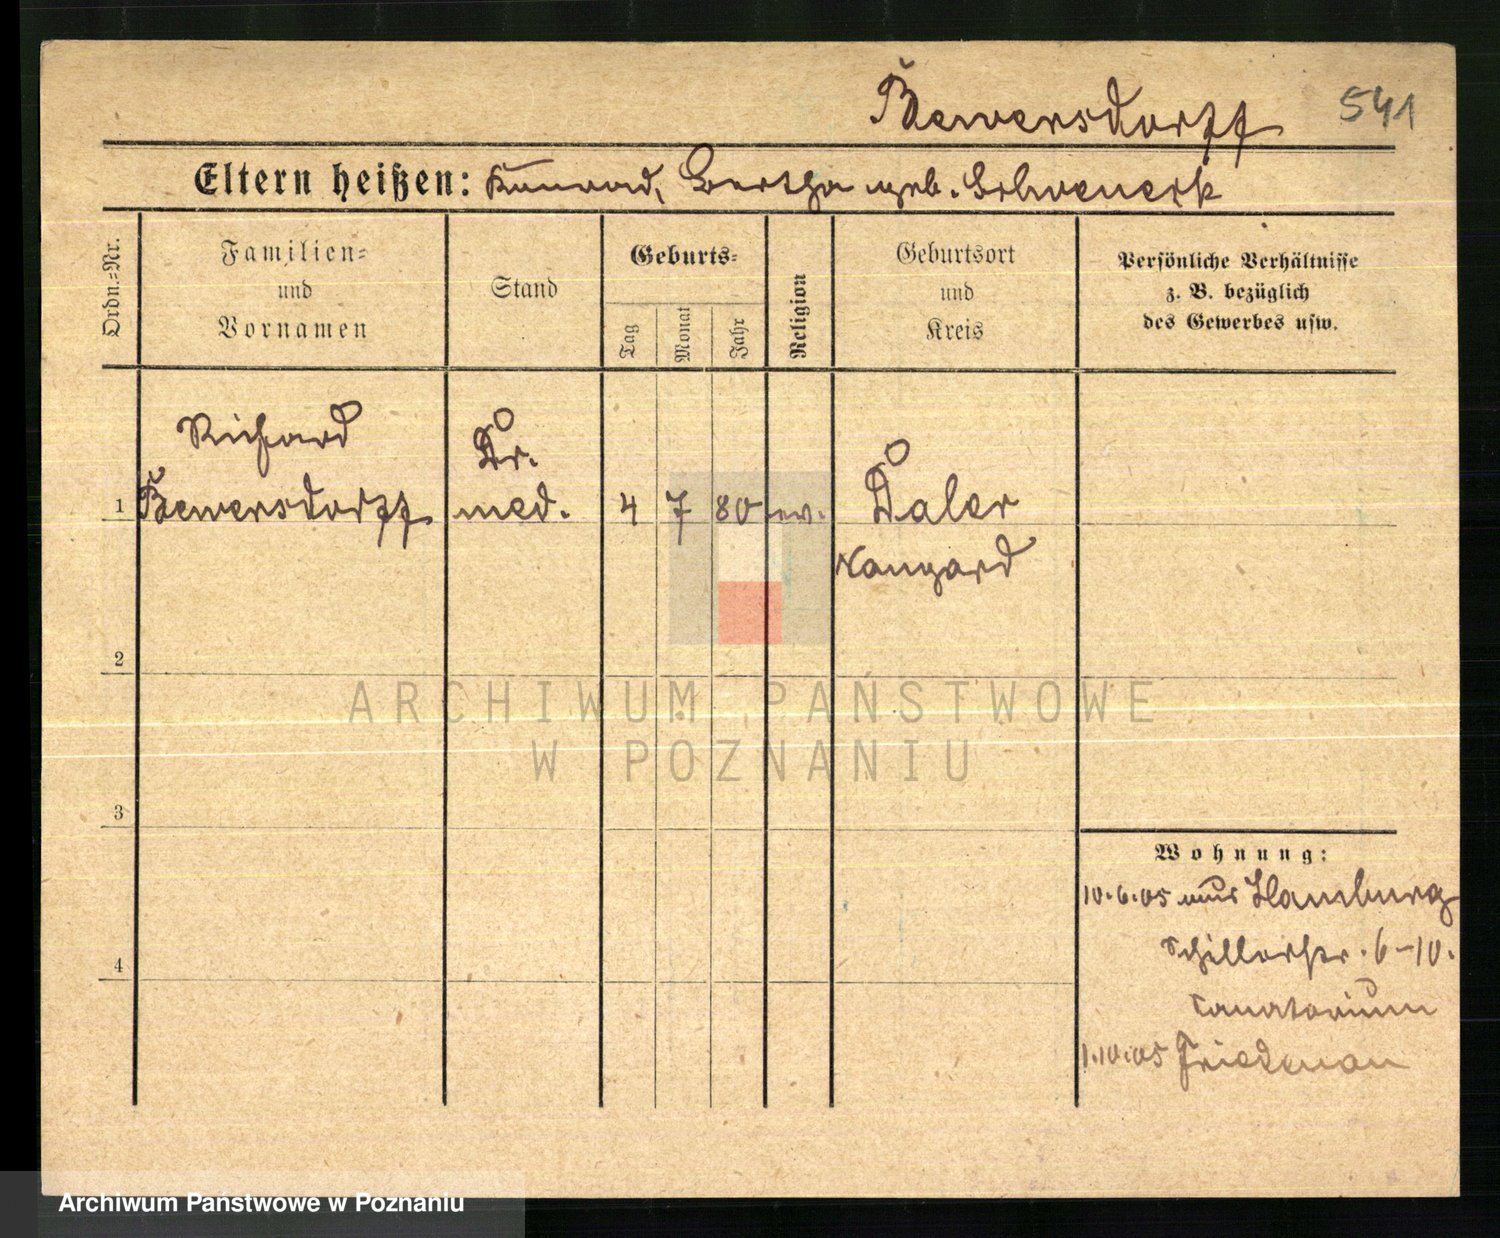 Bewersdorff 541
Eltern heißen: Konrad, Bertha geb.
Ordn.=Nr.
Familien=
und
Vornamen
Stand
Geburts=
Tag
Monat
Jahr
Religion
Geburtsort
und
Kreis
Persönliche Verhältnisse
z. B. bezüglich
des Gewerbes usw.
Richard
Dr.
1 Bewersdorff med. 4 7 80 ev. Daber
Naugard
2
ARCHIWUM PAŃSTWOWE
W POZNANIU
3
Wohnung:
10.6.05 aus Hamburg
Schillerstr. 6-10.
4
Sanatorium
1.10.05 Friedenau
Archiwum Państwowe w Poznaniu